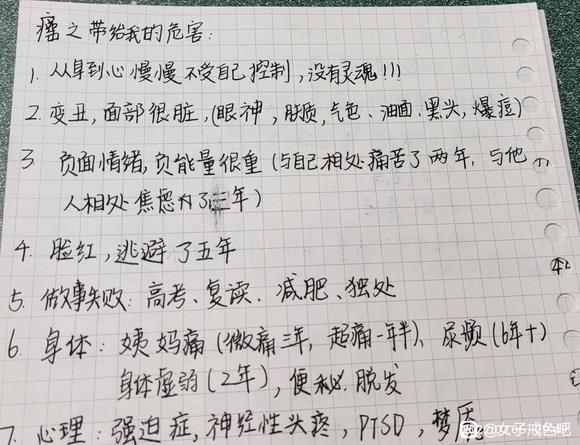 瘾之带给我的危害:
1. 从身到心慢慢不受自己控制,没有灵魂!!!
2. 变丑,面部很脏,(眼神,肤质,气色、油面、黑头,爆痘)
3 负面情绪,负能量很重(与自己相处痛苦了两年,与他
人相处焦虑 了三年)
4. 脸红,逃避了五年
5. 做事失败:高考、复读、减肥、独处
6. 身体:姨妈痛(微痛三年,超痛一年半)、尿频(6年+)
身体虚弱(2年),便秘,脱发
7. 心理:强迫症,神经性头疼,PTSD,梦
女子戒色吧